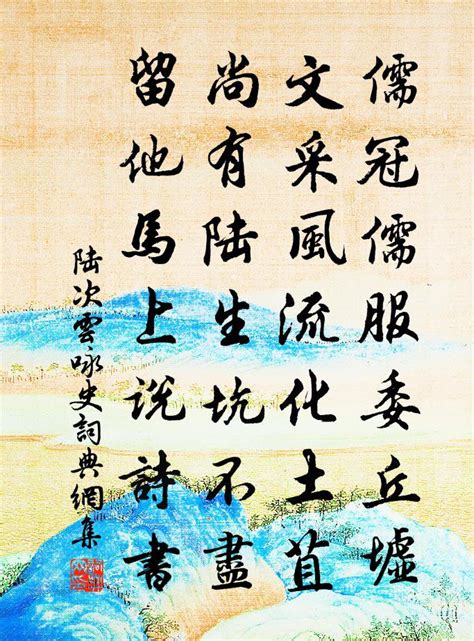 儒冠儒服委丘墟
文采風流化土苴
尚有陆生坑不盡
留他馬上说詩書
陆次雲咏史詞典網集